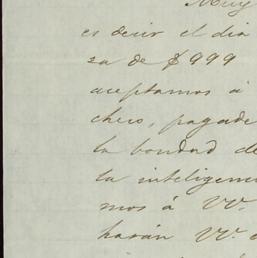 Muy
es decir el dia
za de $999
aceptamos á
chero, pagade
la bondad de
la inteligenci
mos á VV.
harán VV. e